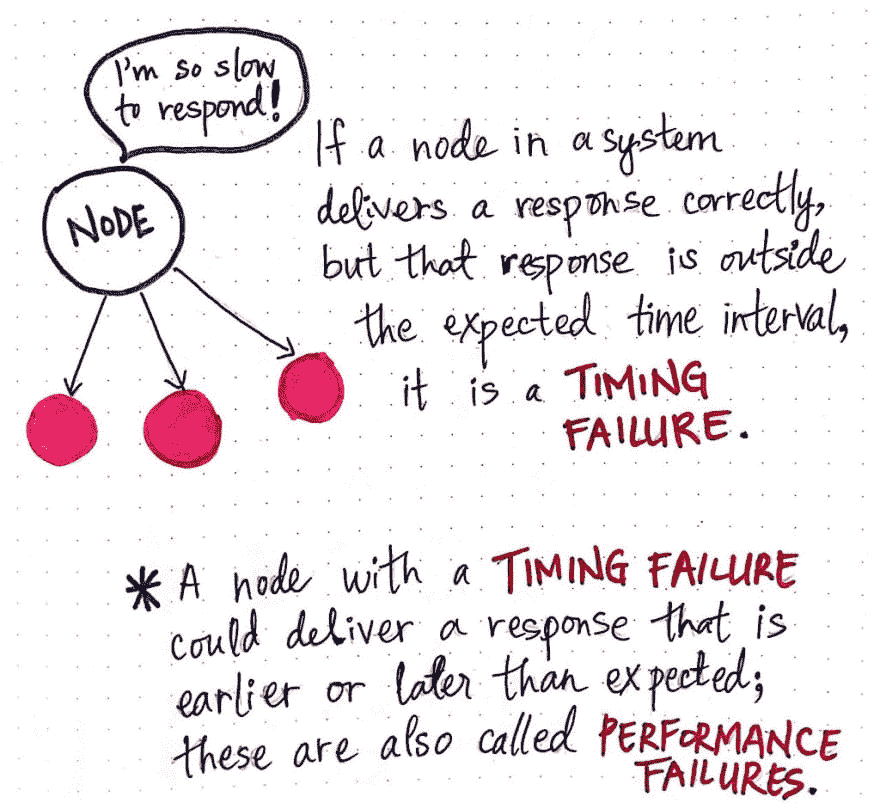 I'm so slow
to respond!
NODE
If a node in a system
delivers a response correctly,
but that response is outside
the expected time interval,
it is a TIMING
FAILURE.
* A node with a TIMING FAILURE
could deliver a response that is
earlier or later than expected;
these are also called PERFORMANCE
FAILURES.